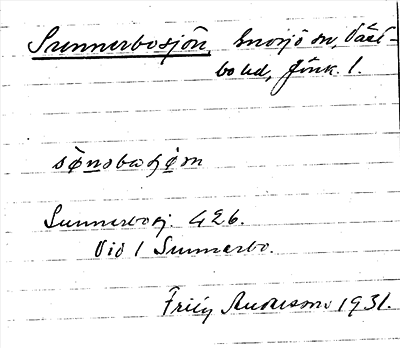 Sunnerbosjön, Gnosjö sn, Väst-
bo hd, Jönk. l.
sø̀nsbosjø̀n
Sunnerbosj. 426.
Vid 1 Sunnerbo.
Frity Anderson 1931.